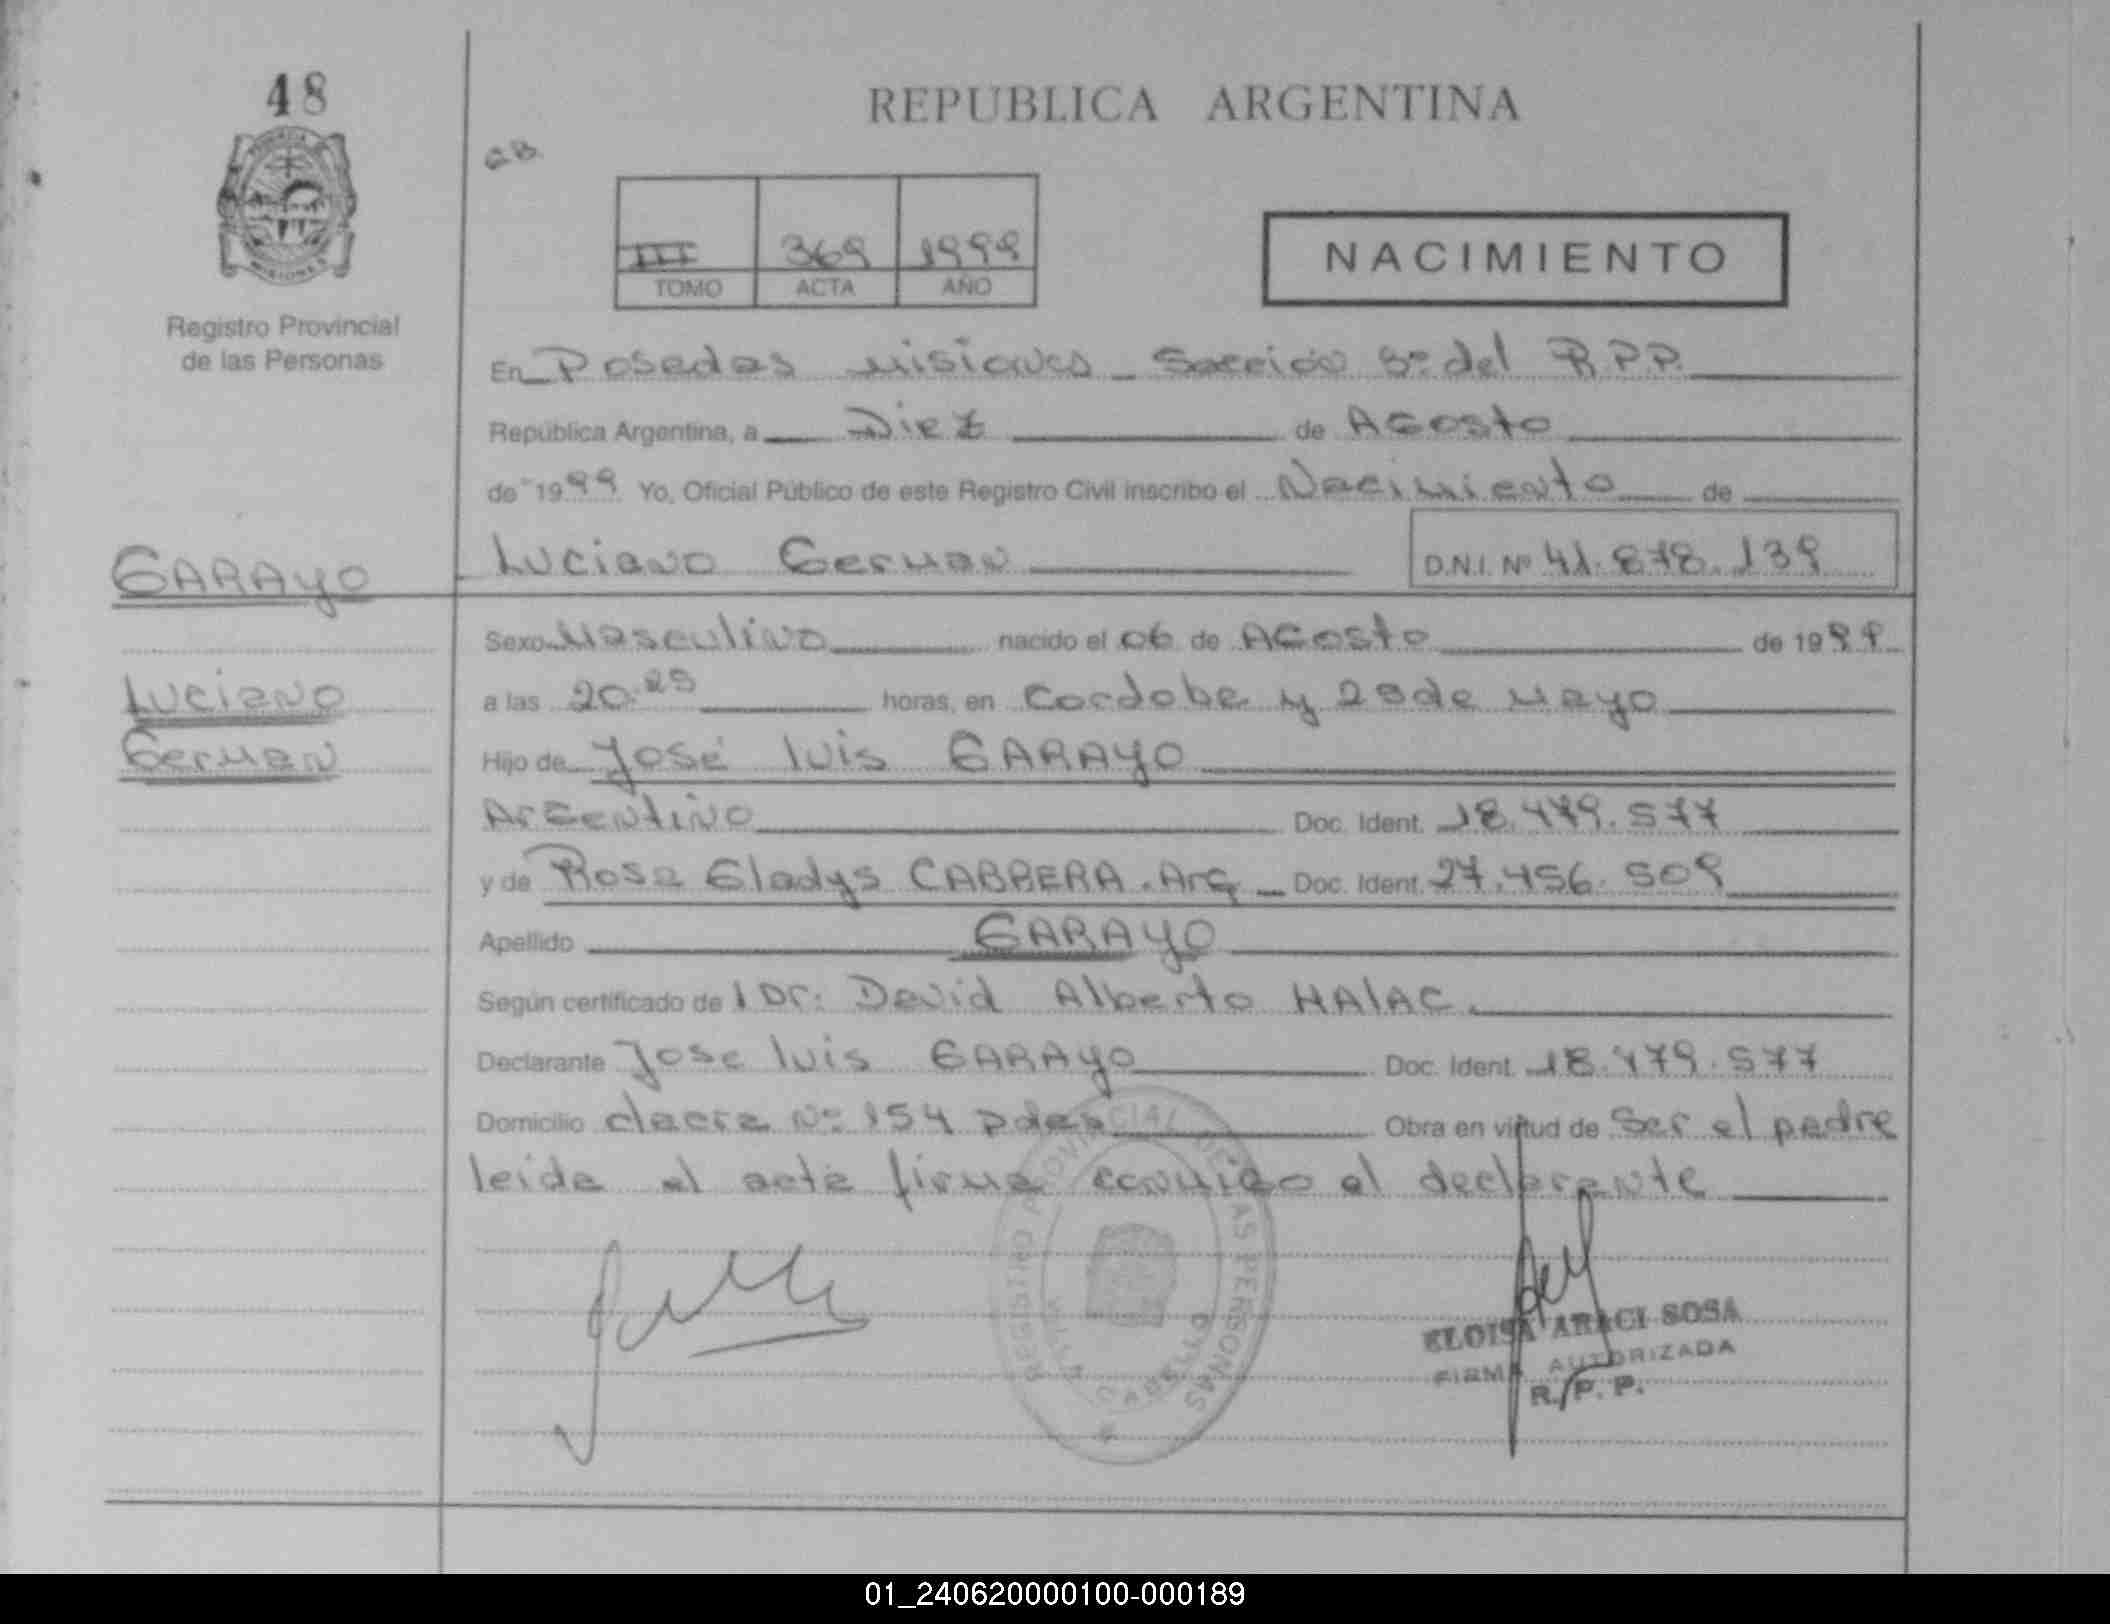 48
REPUBLICA ARGENTINA
PROVINCIA
MISIONES
Registro Provincial
de las Personas
III 369 1999
TOMO ACTA AÑO
NACIMIENTO
En Posadas Misiones - Sección 3º del R.P.P.
República Argentina, a Diez de Agosto
de 1999 Yo, Oficial Público de este Registro Civil inscribo el Nacimiento de
GARAYO
Luciano German
D.N.I. Nº 41.878.139
Sexo Masculino nacido el 06 de Agosto de 1999
Luciano
a las 20.25 horas, en Cordoba y 25 de Mayo
German
Hijo de José luis GARAYO
Argentino Doc. Ident. 18.479.577
y de Rosa Gladys CABRERA. Arg Doc. Ident. 27.456.509
Apellido GARAYO
Según certificado de l Dr: David Alberto HAlAC.
Declarante Jose luis GARAYO Doc. Ident. 18.479.577
Domicilio chacra Nº 154 Pdas Obra en virtud de ser el padre
leida el acta firma conmigo el declarante
REGISTRO PROVINCIAL DE LAS PERSONAS
VILLA CABELLO
ELOISA ARACI SOSA
FIRMA AUTORIZADA
R. P. P.
01_240620000100-000189